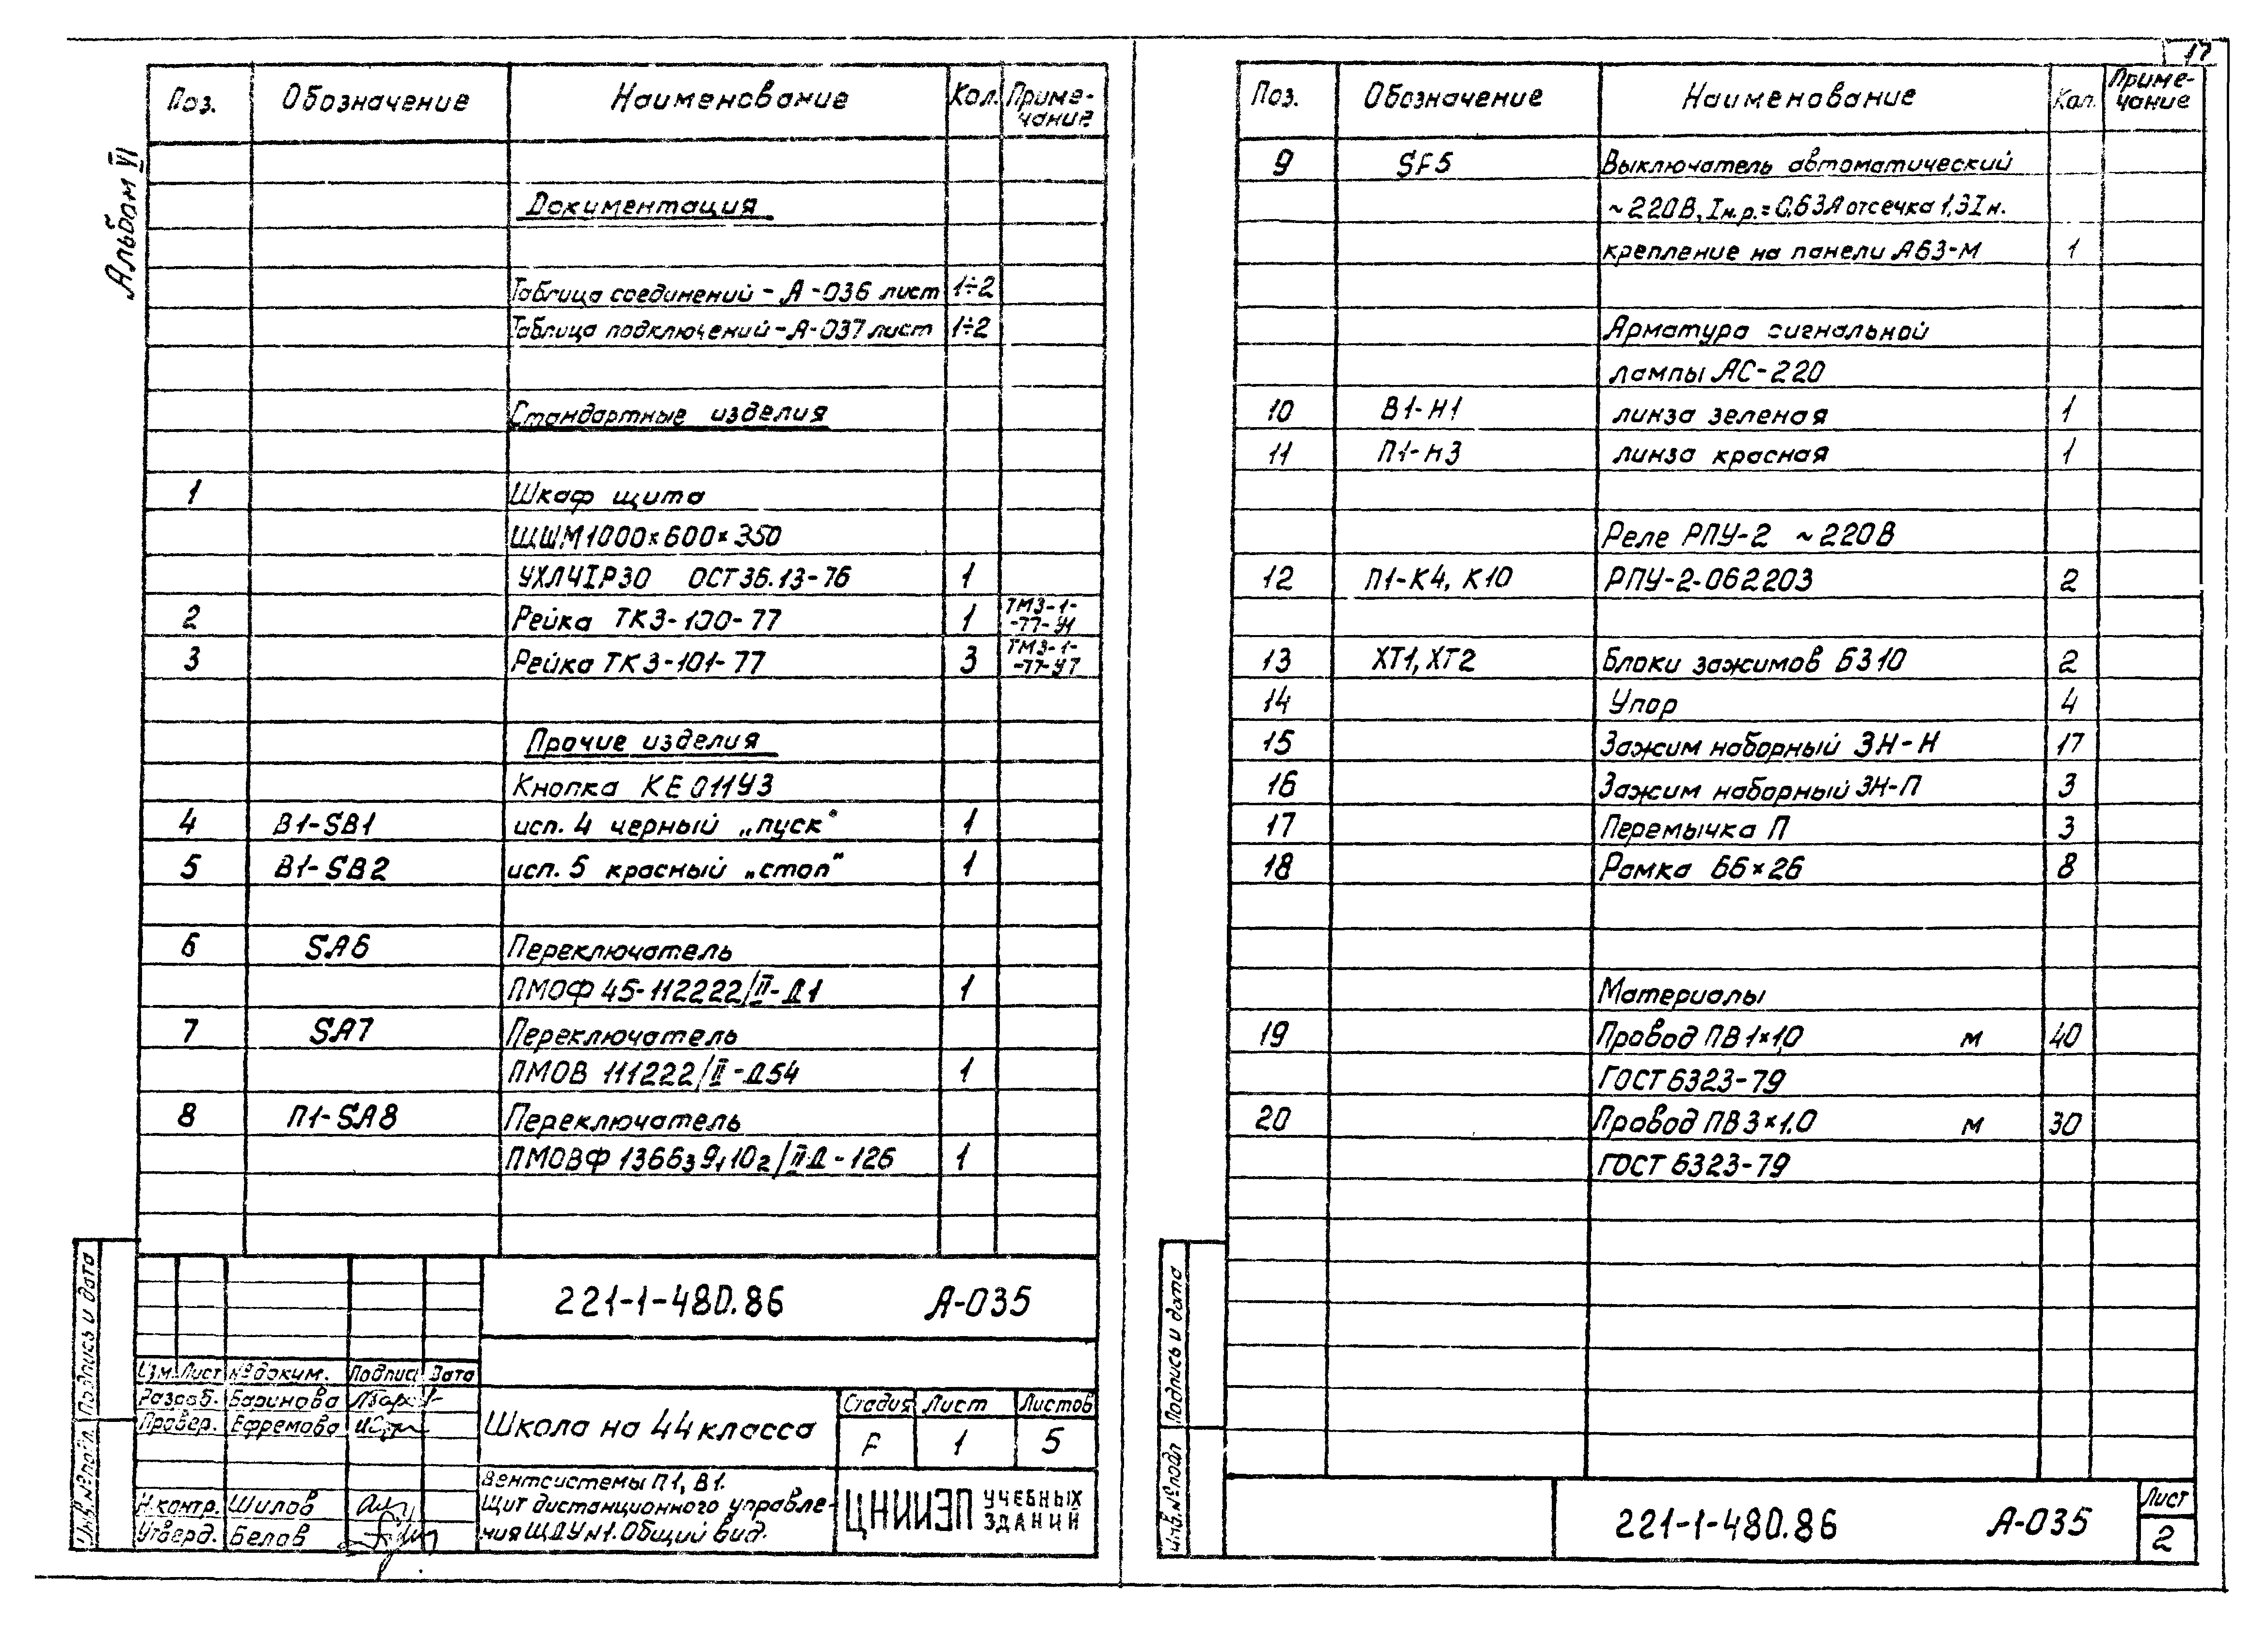 17
Альбом VI
Поз. Обозначение Наименование Кол. Приме-
чание
Документация
Таблица соединений - А-036 лист 1÷2
Таблица подключений - А-037 лист 1÷2
Стандартные изделия
1 Шкаф щита
ЩШМ 1000×600×350
УХЛЧIР30 ОСТ 36.13-76 1
2 Рейка ТК3-100-77 1 ТМ3-1-
-77-У1
3 Рейка ТК3-101-77 3 ТМ3-1-
-77-У7
Прочие изделия
Кнопка КЕ 011У3
4 В1-SB1 исп. 4 черный „пуск" 1
5 В1-SB2 исп. 5 красный „стоп" 1
6 SA6 Переключатель
ПМОФ 45-112222/II-Д1 1
7 SA7 Переключатель
ПМОВ 111222/II-Д54 1
8 П1-SA8 Переключатель
ПМОВФ 1366₃9₁10₂/IIД-126 1
221-1-480.86 А-035
Изм. Лист № доким. Подпись Дата
Разраб. Баринова
Провер. Ефремова
Н.контр. Шилов
Утверд. Белов
Школа на 44 класса
Стадия Лист Листов
Р 1 5
Вентсистемы П1, В1.
Щит дистанционного управле-
ния ЩДУ №1. Общий вид.
ЦНИИЭП УЧЕБНЫХ
ЗДАНИЙ
Инв. № подл. Подпись и дата
Поз. Обозначение Наименование Кол. Приме-
чание
9 SF5 Выключатель автоматический
~220В, Iн.р.=0,63А отсечка 1,3Iн.
крепление на панели А63-М 1
Арматура сигнальной
лампы АС-220
10 В1-Н1 линза зеленая 1
11 П1-Н3 линза красная 1
Реле РПУ-2 ~220В
12 П1-К4, К10 РПУ-2-062203 2
13 ХТ1, ХТ2 Блоки зажимов БЗ10 2
14 Упор 4
15 Зажим наборный ЗН-Н 17
16 Зажим наборный ЗН-П 3
17 Перемычка П 3
18 Рамка 66×26 8
Материалы
19 Провод ПВ1×1,0 м 40
ГОСТ 6323-79
20 Провод ПВ3×1.0 м 30
ГОСТ 6323-79
Инв. № подл Подпись и дата
221-1-480.86 А-035
Лист
2